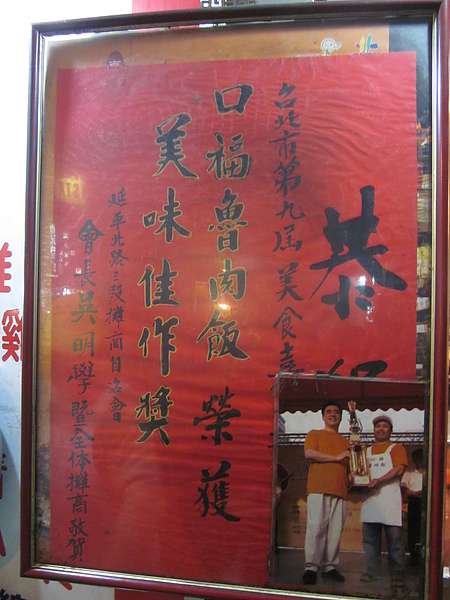 恭
台北市第九屆美食
口福魯肉飯 榮獲
美味佳作獎
延平北路三段攤商自治會
會長吳明學暨全体攤商敬賀